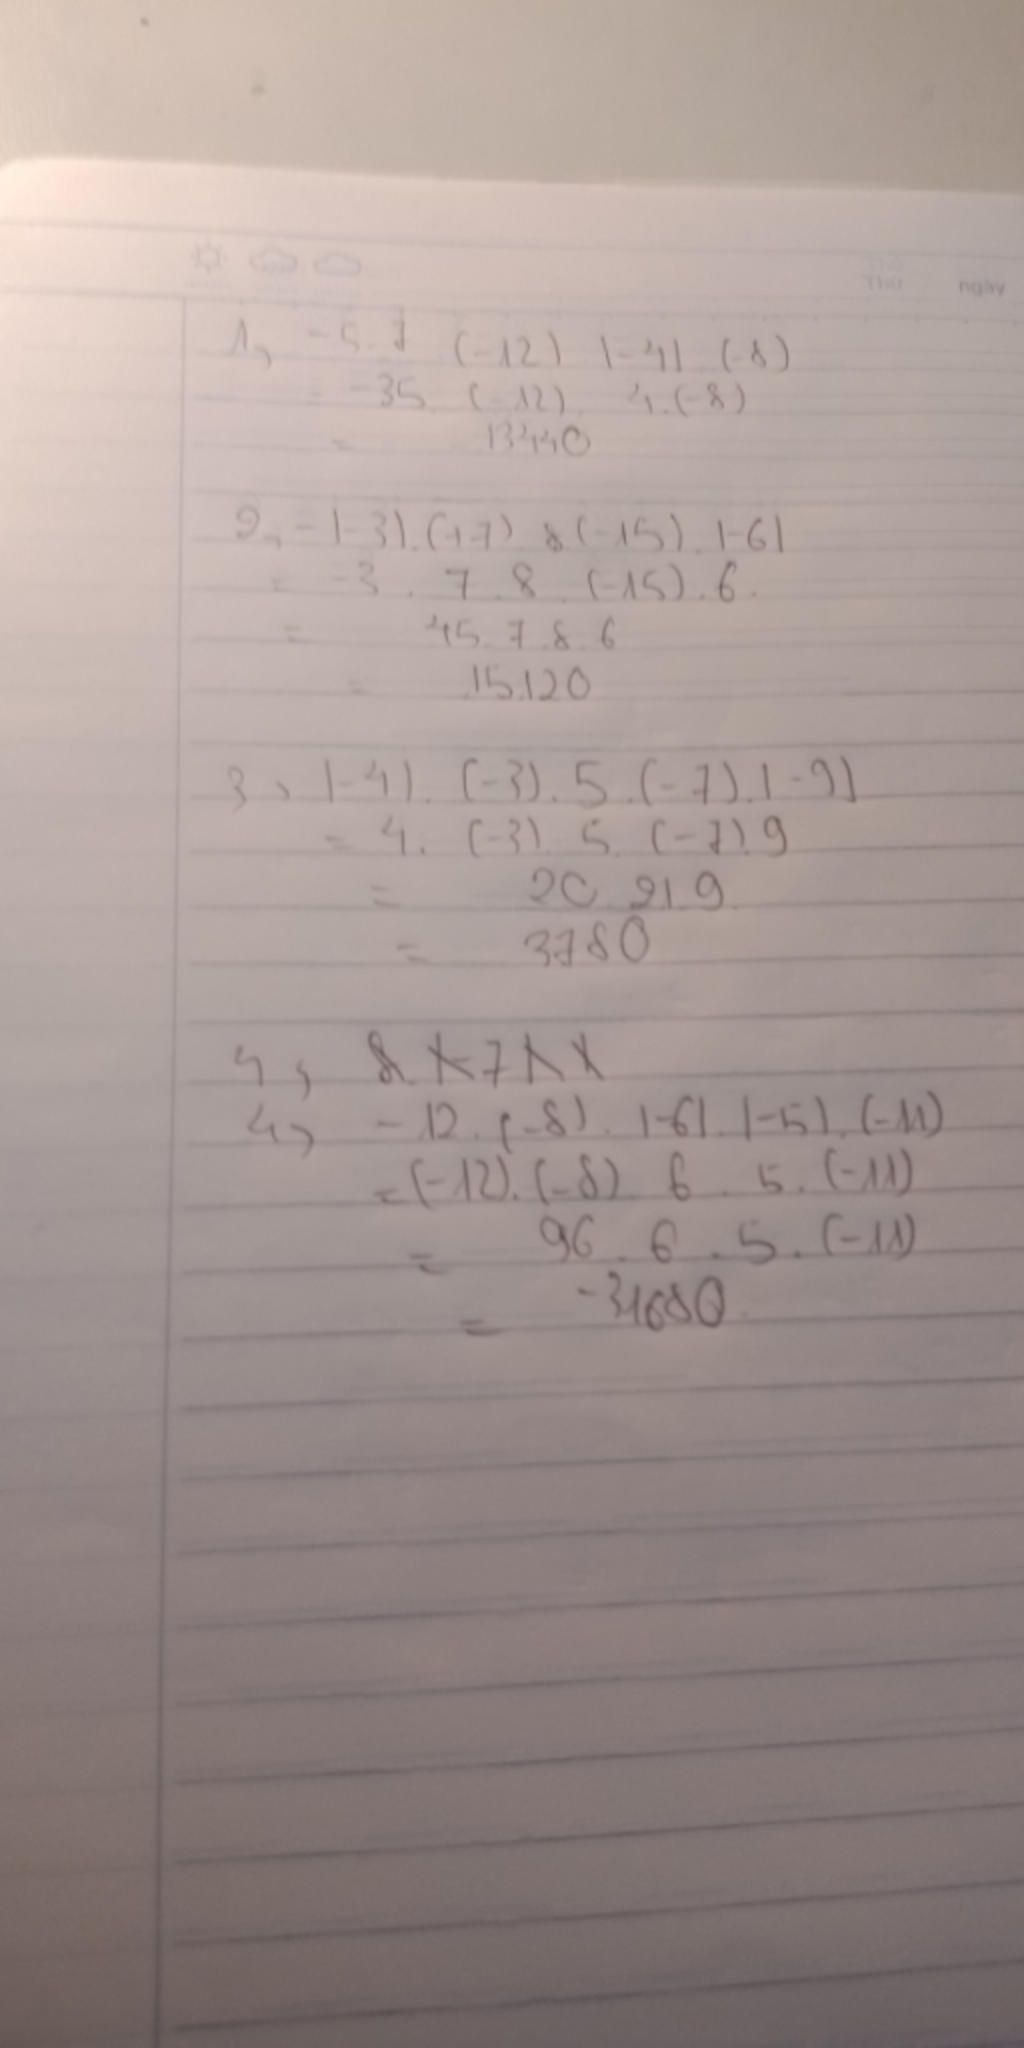 Thứ ngày
1, -5.7 (-12) |-4| (-8)
= -35. (-12). 4.(-8)
= 13440
2, -|-3|.(+7) 8(-15).|-6|
= -3.7.8.(-15).6.
= 45.7.8.6
= 15.120
3, |-4|.(-3).5.(-7).|-9|
= 4.(-3).5.(-7).9
= 20.21.9
= 3780
4,
4, -12.(-8).|-6|.|-5|.(-11)
= (-12).(-8).6.5.(-11)
= 96.6.5.(-11)
= -31680